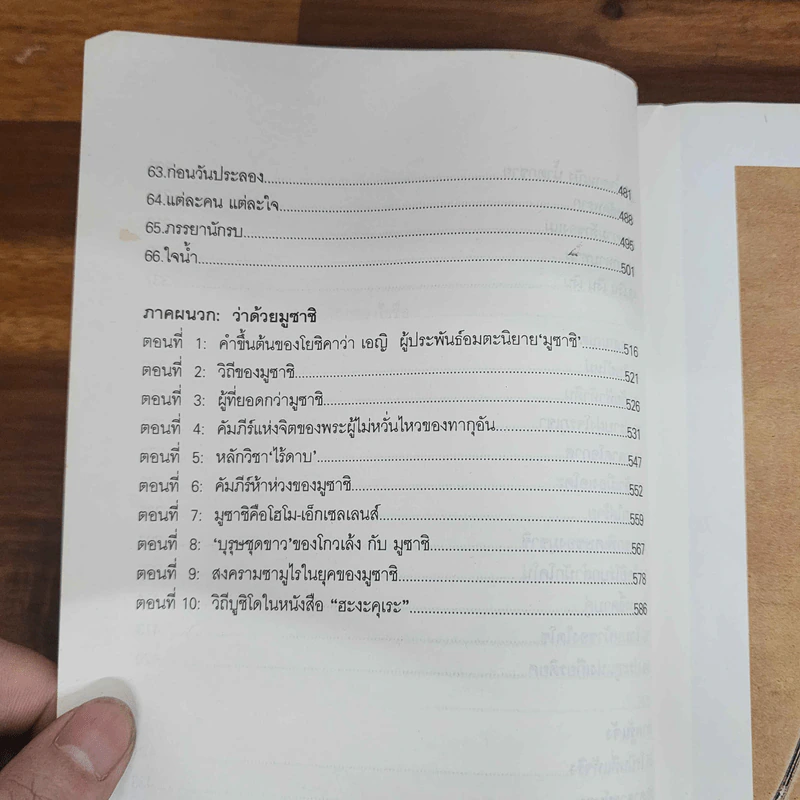 63.ก่อนวันประลอง.......................................................................481
64.แต่ละคน แต่ละใจ.......................................................................488
65.ภรรยานักรบ.......................................................................495
66.ใจน้ำ.......................................................................501
ภาคผนวก: ว่าด้วยมูซาชิ
ตอนที่ 1: คำขึ้นต้นของโยชิคาว่า เอญิ ผู้ประพันธ์อมตะนิยาย'มูซาชิ'...........516
ตอนที่ 2: วิถีของมูซาชิ.......................................................................521
ตอนที่ 3: ผู้ที่ยอดกว่ามูซาชิ.......................................................................526
ตอนที่ 4: คัมภีร์แห่งจิตของพระผู้ไม่หวั่นไหวของทากุอัน...........................531
ตอนที่ 5: หลักวิชา'ไร้ดาบ'.......................................................................547
ตอนที่ 6: คัมภีร์ห้าห่วงของมูซาชิ.......................................................................552
ตอนที่ 7: มูซาชิคือโฮโม-เอ็กเซลเลนส์.......................................................559
ตอนที่ 8: 'บุรุษชุดขาว'ของโกวเล้ง กับ มูซาชิ...........................................567
ตอนที่ 9: สงครามซามูไรในยุคของมูซาชิ.......................................................578
ตอนที่ 10: วิถีบูชิโดในหนังสือ "ฮะงะคุเระ"...............................................586